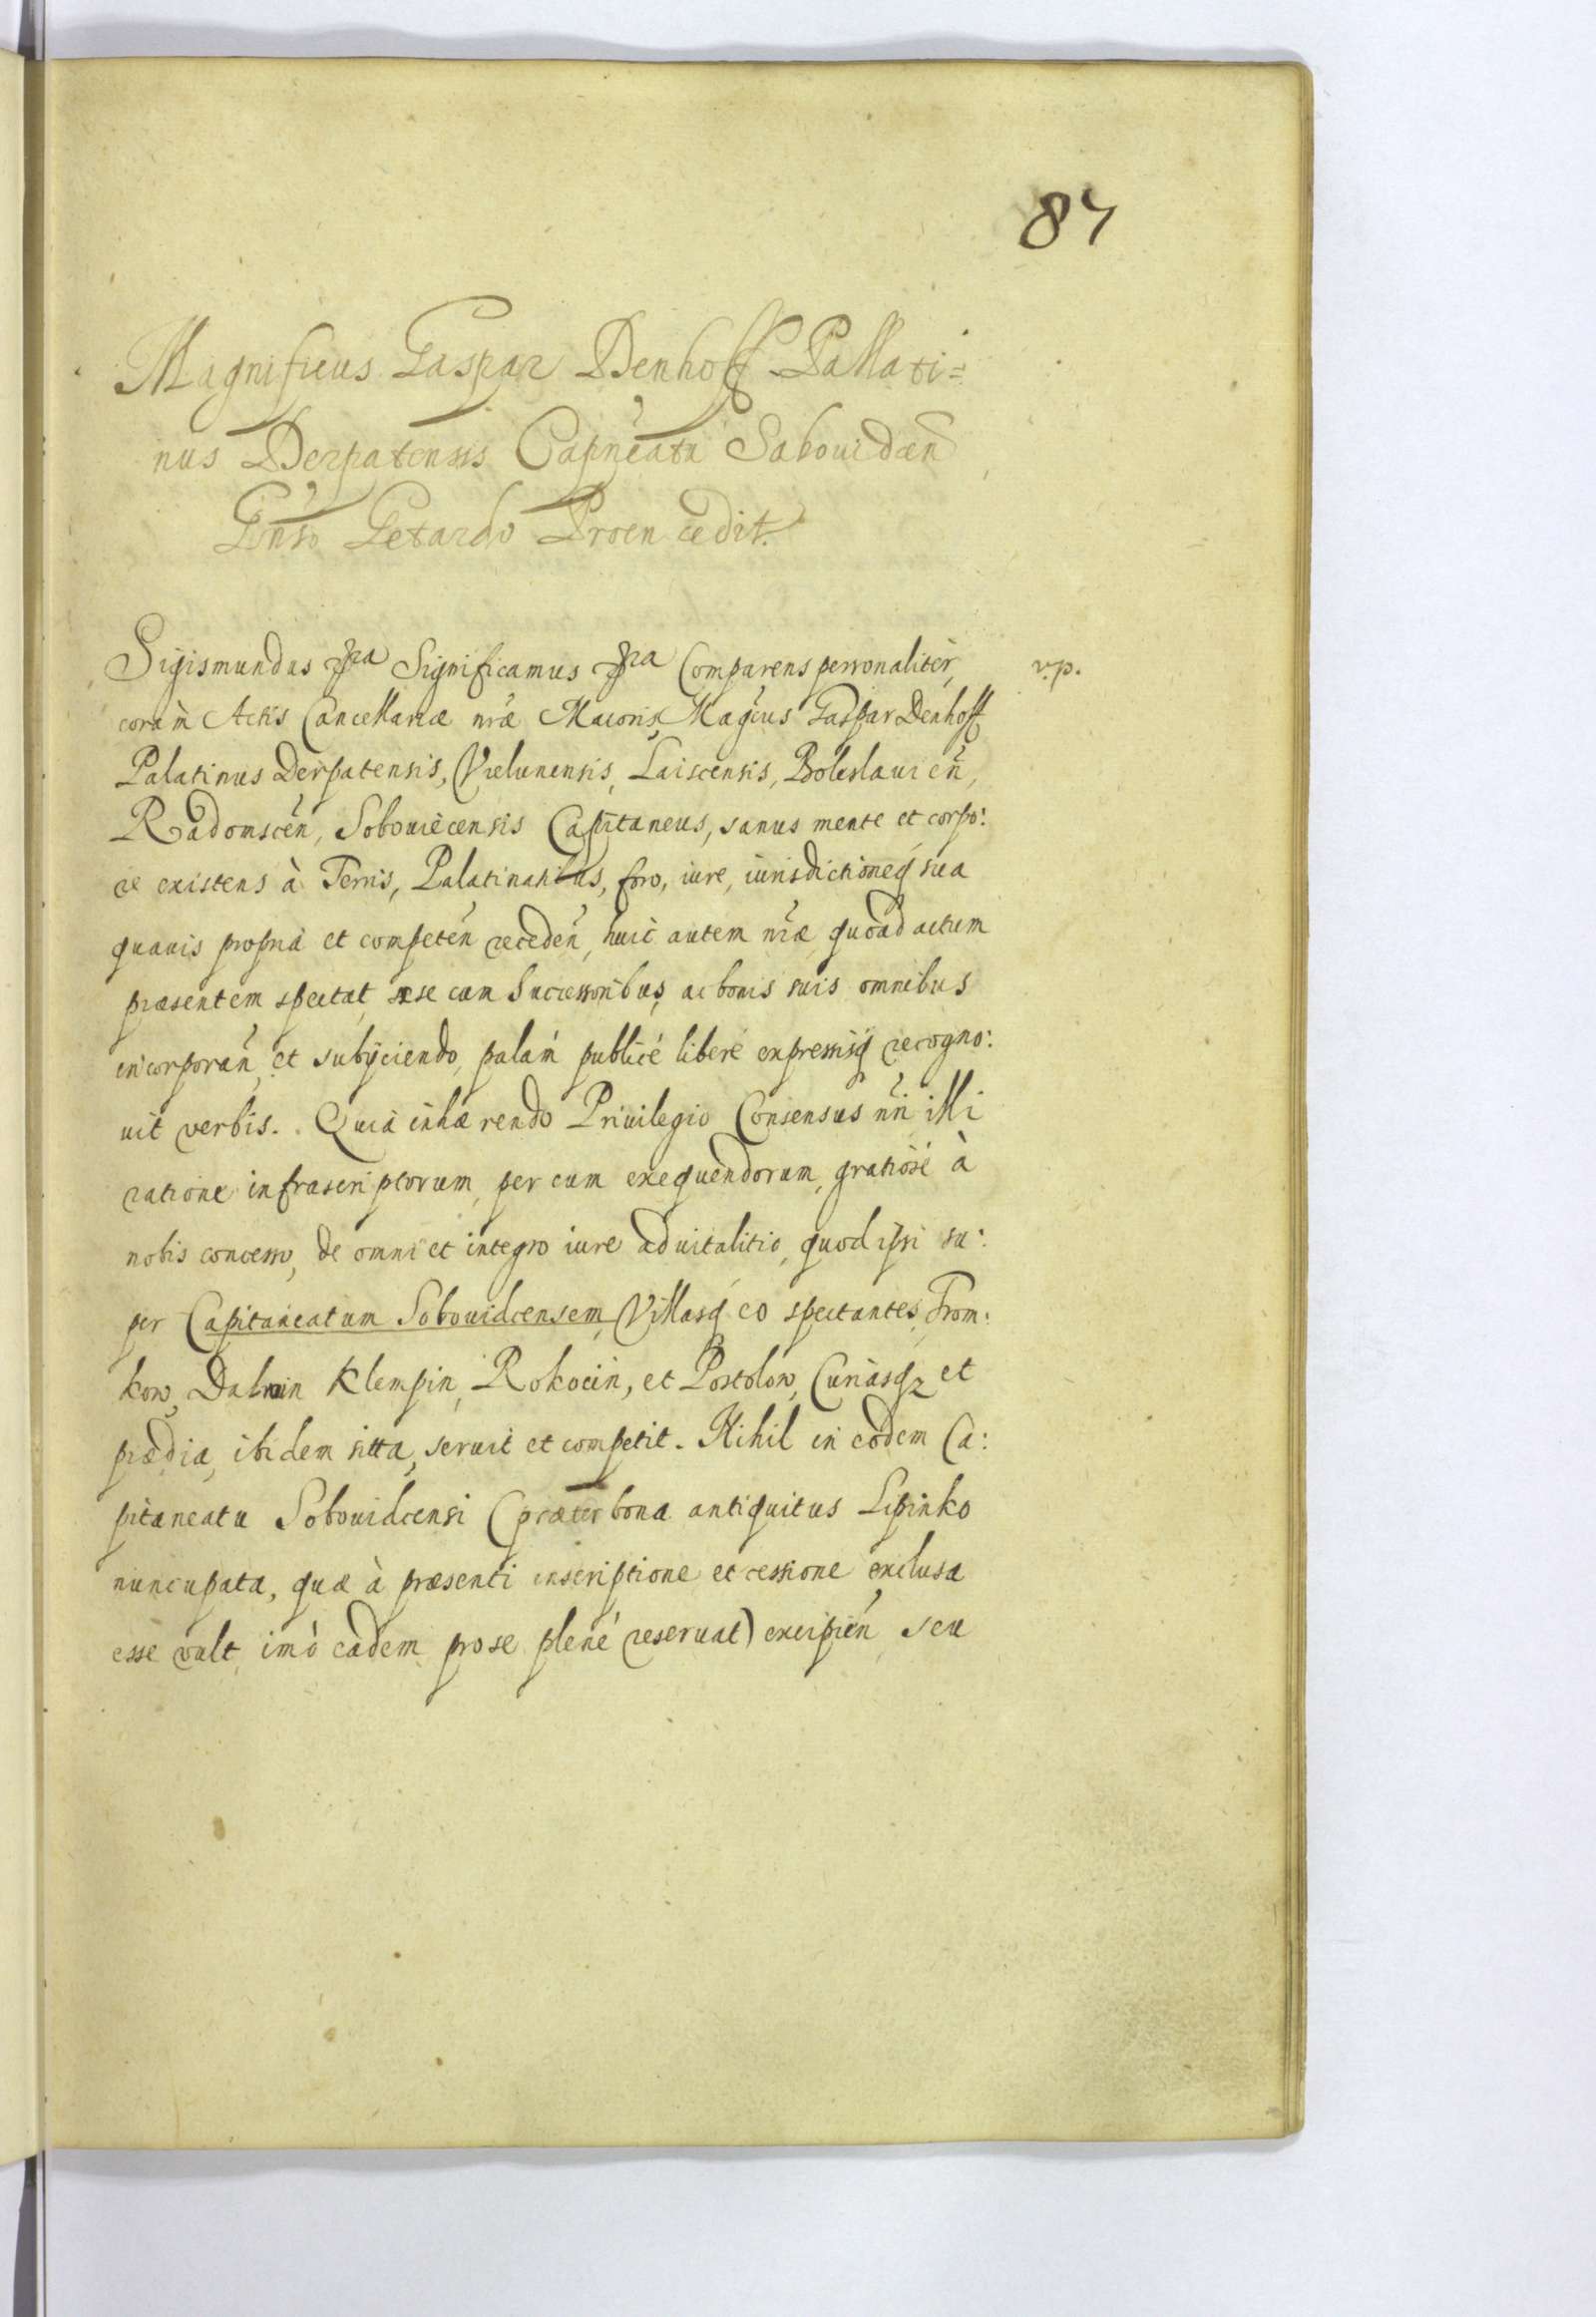 87
Magnificus Gaspar Denhoff Pallati=
nus Derpatensis Capneatu Sabouidcen
Gnso Getardo Proen cedit.
Sigismundus Significamus Comparens personaliter, v.p.
coram Actis Cancellariæ nræ Maioris, Magcus Gaspar Denhoff
Palatinus Derpatensis, Vielunensis, Laiscensis, Boleslauien,
Radomscen, Sobouiecensis Capitaneus, sanus mente et corpo:
re existens à Terris, Palatinatibus, foro, iure, iurisdictioneq sua
quauis propria et competen receden, huic autem nræ, quoad actum
præsentem spectat, sese cum Successoribus, ac bonis suis omnibus
incorporan, et subijciendo, palam publicé liberé expressisq recogno:
uit verbis. Quia inhærendo Priuilegio Consensus nri illi
ratione infrascriptorum, per eum exequendorum, gratiosé à
nobis concesso, de omni et integro iure aduitalitio, quod ipsi su:
per Capitaneatum Sobouidcensem, Villasq eo spectantes, Trom:
kow, Dalwin Klempin, Rokocin, et Postolow, Curiasq et
prædia, ibidem sitta, seruit et competit. Nihil in eodem Ca:
pitaneatu Sobouidcensi (præter bona antiquitus Lipinko
nuncupata, quæ à præsenti inscriptione et cessione exclusa
esse vult, imò eadem pro se plené reseruat) excipien seu